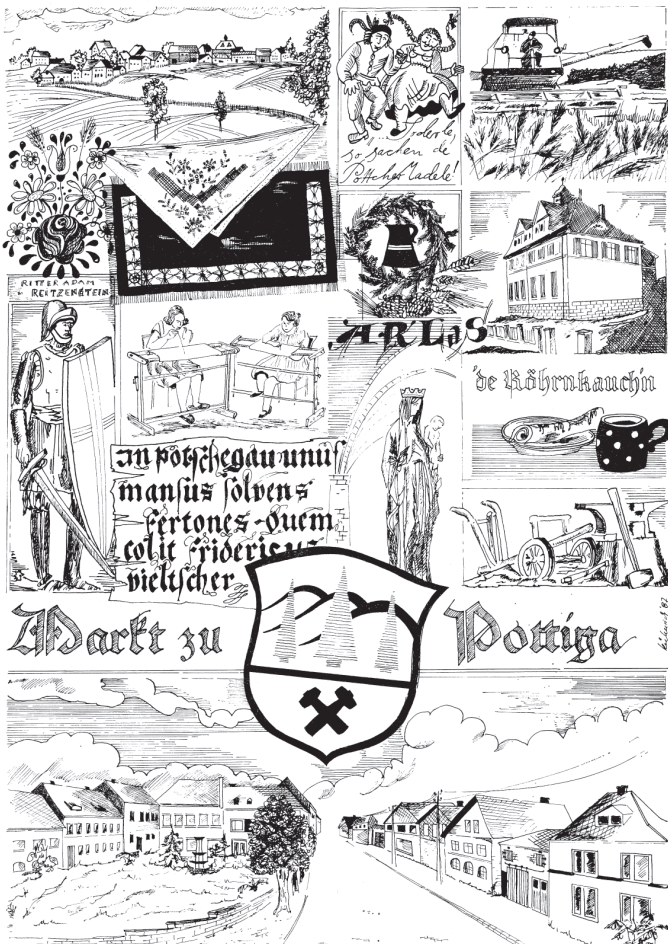 so sachen de
Pöttcher Madele!
RITTER ADAM
v. REITZENSTEIN
ARLAS
'de Röhrnkauch'n
in pötschegau unus
mansus solvens
fertones - quem
colit fridericus
vieltscher
Markt zu Pottiga